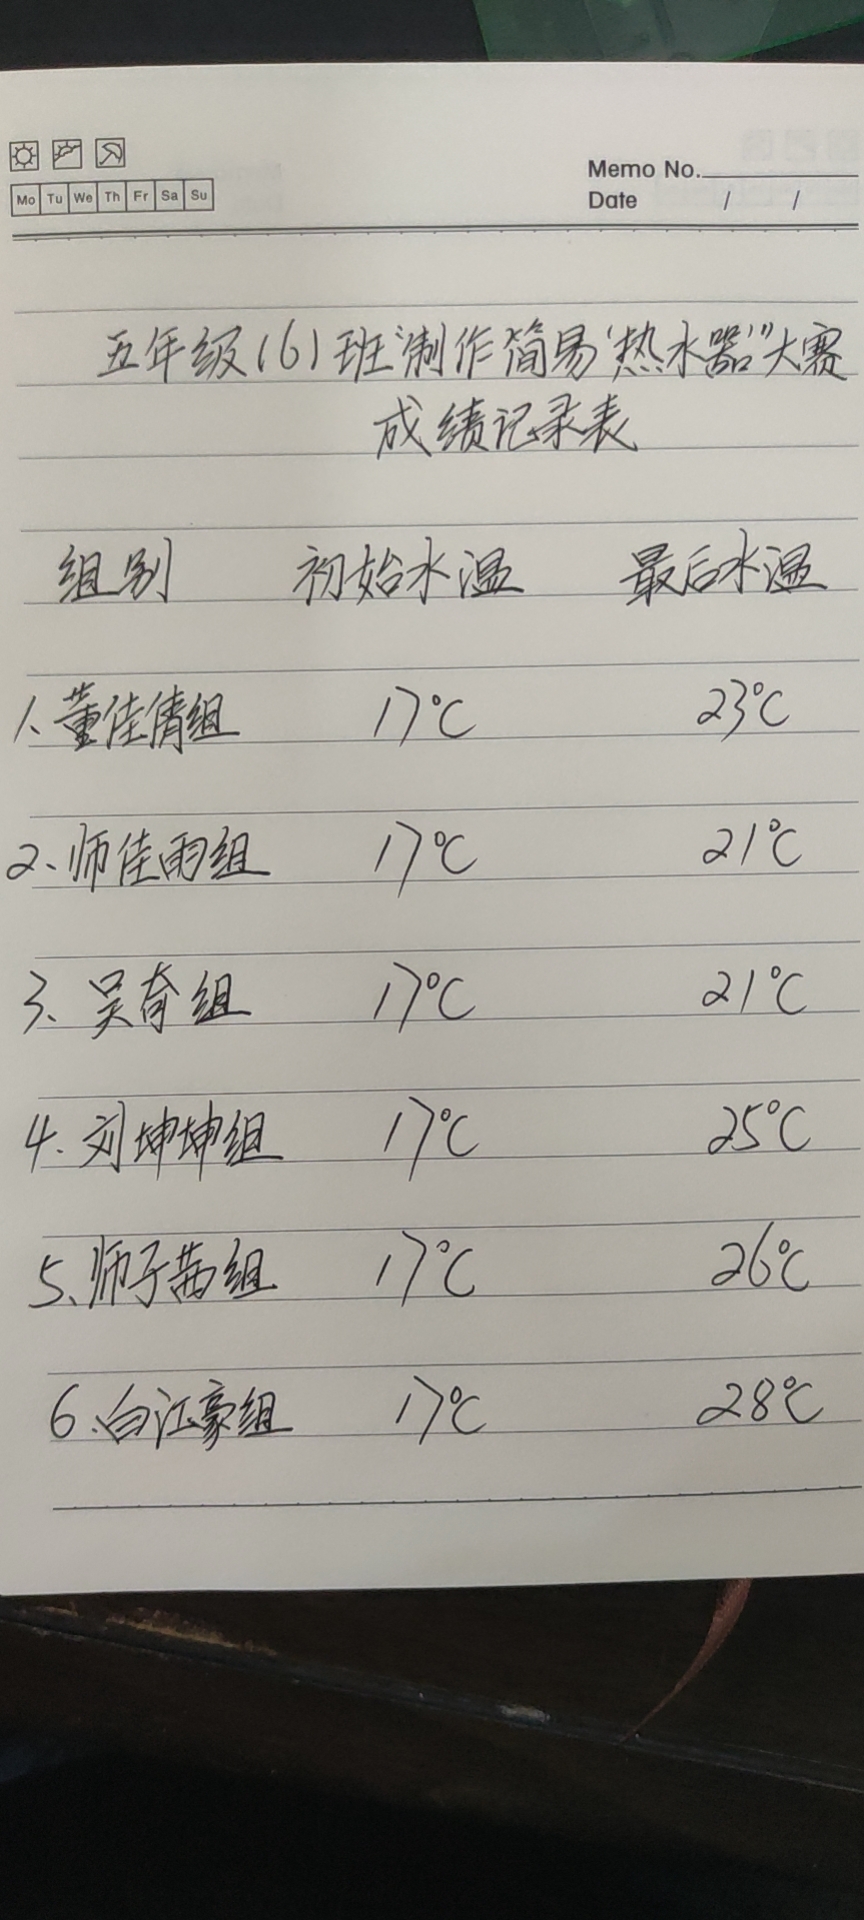 Mo Tu We Th Fr Sa Su
Memo No.
Date / /
五年级(6)班"制作简易'热水器'"大赛
成绩记录表
组别 初始水温 最后水温
1、董佳倩组 17℃ 23℃
2、师佳雨组 17℃ 21℃
3、吴奇组 17℃ 21℃
4、刘坤坤组 17℃ 25℃
5、师子茜组 17℃ 26℃
6、白江豪组 17℃ 28℃